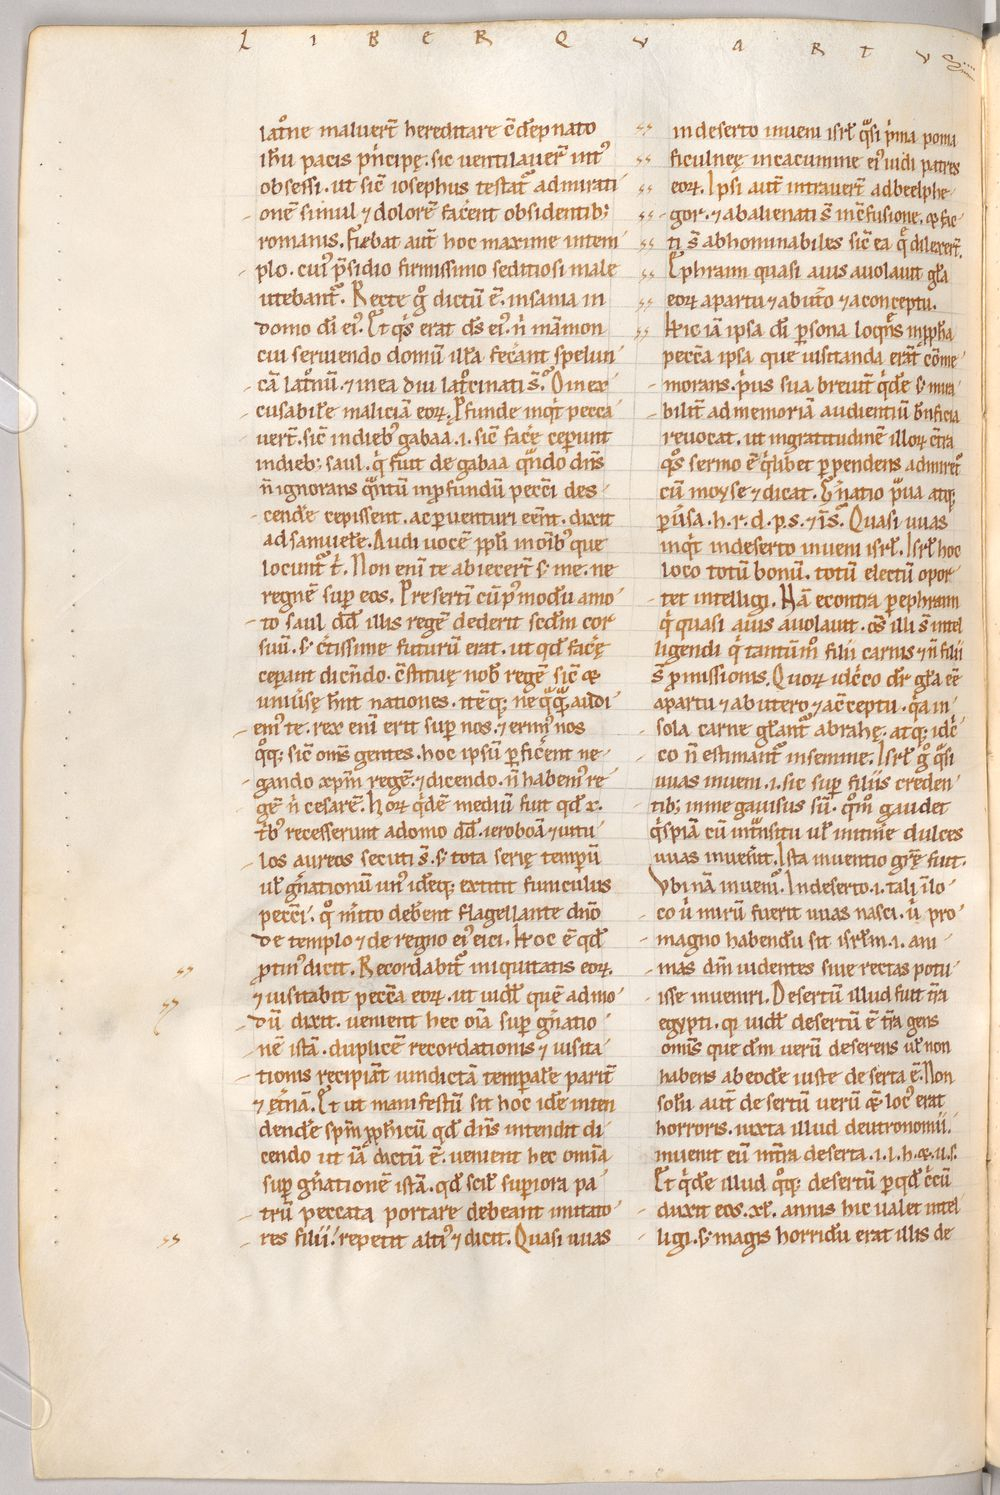 LIBER QVARTVS
latōne maluerт̄ hereditare ē dēp nato
ihū pacis pⁱncipę. sic uentilauerт̄ intꝰ
obsessi. ut sic̄ iosephus testat᷑ admirati
onē simul ⁊ dolorē fac̄ent obsidentib;
romanis. Fiebat aut̄ hoc maxime in tem
plo. cuiꝰ p̄sidio firmissimo seditiosi male
utebant᷑. Recte gͦ dictū ē. insania in
domo dī eiꝰ. Et qⁱs erat d̄s eiꝰ. n̄ māmon
cui seruiendo domū illā fec̄ant spelun
cā latͦnū. ⁊ in ea diu latͦcinati s̄. O inex
cusabilē maliciā eoꝝ. Ꝓfunde inqⁱt pecca
uerт̄. sic̄ in diebꝰ gabaa .i. sic̄ fac̄ę ceperunt
in dieb; saul. qⁱ fuit de gabaa qᵃndo dn̄s
n̄ ignorans qᵃntū in ꝓfundū pecc̄i des
cendere cepissent. ac peruenturi eēnt. dixit
ad samuelē. Audi uocē ppl̄i in om̄ibꝰ que
locunt᷑ t̄. Non enī te abiecerт̄ s; me. ne
regnē suꝑ eos. Presertī cū pͥmodū amo
to saul dd̄ illis regē dederit scd̄m cor
suū. s; c̄tissime futurū erat. ut qd̄ fac̄ę
ceperant dicendo. c̄stituę nob̄ regē sic̄ ⁊
uniūsę hn̄t nationes. itēq; neqᵃqᵃ audi
emꝰ te. rex enī erit suꝑ nos. ⁊ erimꝰ nos
qͦq; sic̄ om̄s gentes. hoc ipsū ꝑfic̄ent ne
gando xp̄m regē. ⁊ dicendo. n̄ habemꝰ re
gē n̄ cesarē. Hoꝝ qⁱdē mediū fuit qd̄ .x.
t̄bꝰ recesserunt a domo dd̄. ieroboā ⁊ uitu
los aureos secuti s̄. s; tota serię tempū
ul̄ gn̄ationū unꝰ idēq; extitit funiculus
pecc̄i. qͦ m̄ito deb̄ent flagellante dn̄o
de templo ⁊ de regno eiꝰ eici. Hoc ē qd̄
ꝓtinꝰ dicit. Recordabit᷑ iniquitatis eoꝝ.
⁊ uisitabit pecc̄a eoꝝ. ut uidl̄ quē admo
dū dixit. uenient hec om̄ia suꝑ gn̄atio
nē istā. duplicē recordationis ⁊ uisita
tionis recipiāt uindictā temporalē parit̄
⁊ et̄nā. Et ut manifestū sit hoc idē inten
dendē spm̄ ꝓph̄icū qd̄ dn̄s intendit di
cendo ut iā dictū ē. uenient hec omīa
suꝑ gn̄ationē istā. qd̄ scil̄ suꝑiora pa
trū peccata portare debeant imitato
res filii. repetit altiꝰ ⁊ dicit. Quasi uuas
in deserto inueni isrl̄. qᵃsi pⁱma poma
ficulneę in cacumine eiꝰ uidi patres
eoꝝ. Ipsi aut̄ intrauerт̄ ad beelphe
gor. ⁊ abalienati s̄ in c̄fusione. ⁊ fac
ti s̄ abhominabiles sic̄ ea q̄ dilexerт̄.
Ephraim quasi auis auolauit gl̄a
eoꝝ a partu ⁊ ab ut̄o ⁊ a conceptu.
Hic iā ipsa dī ꝑsona loqn̄s in ꝓph̄a
pecc̄a ipsa que uisitanda erāt cōme
morans. pⁱus sua breuit̄ qⁱdē s; mira
bilit̄ ad memoriā audientiū bn̄ficia
reuocat. ut ingratitudinē illoꝝ c̄tra
qͦs sermo ē qⁱlibet ꝑpendens admiret᷑
cū moyse ⁊ dicat. Gn̄atio pᵃua atq;
puͥsa. h. r. d. p. s. ⁊ īs. Quasi uuas
inqⁱt in deserto inueni isrl̄. Isrl̄ hoc
loco totū bonū. totū electū opor
tet intelligi. Nā econtra ꝑ ephraim
qⁱ quasi auis auolauit. om̄s illi s̄ intel
ligendi qⁱ tantūm̄ filii carnis ⁊ n̄ filii
s̄ ꝓmissionis. Quoꝝ idc̄co dr̄ gl̄a eē
a partu ⁊ ab utero ⁊ a c̄ceptu. qⁱa in
sola carne gl̄ant᷑ abrahę. atq; idc̄
co n̄ estimant᷑ in semine. Isrl̄ gͦ qᵃsi
uuas inueni .i. sic suꝑ filiis creden
tib; in me gauisus sū. qͦm̄ gaudet
qⁱspiā cū intᵃnsitu ul̄ in itinē dulces
uuas inuen̄it. Ista inuentio gr̄ę fuit.
Vbi nā inuenī. In deserto .i. tali in lo
co ū mirū fuerit uuas nasci. ū pro
magno habendū sit isrl̄m .i. ani
mas dm̄ uidentes siue rectas potu
isse inueniri. Desertū illud fuit tr̄a
egypti. qⁱ uidl̄ desertū ē tr̄a gens
omīs que dm̄ uerū deserens ul̄ non
habens ab eodē iuste deserta ē. Non
solū aut̄ desertū uerū ⁊ locꝰ erat
horroris. iuxta illud deutronomii.
inuenit eū in tr̄a deserta .i. l. h. ⁊ u. s.
Et qⁱdē illud qͦq; desertū ꝑ qd̄ c̄cū
duxit eos .xl. annis hic ualet intel
ligi. s; magis horridū erat illis de